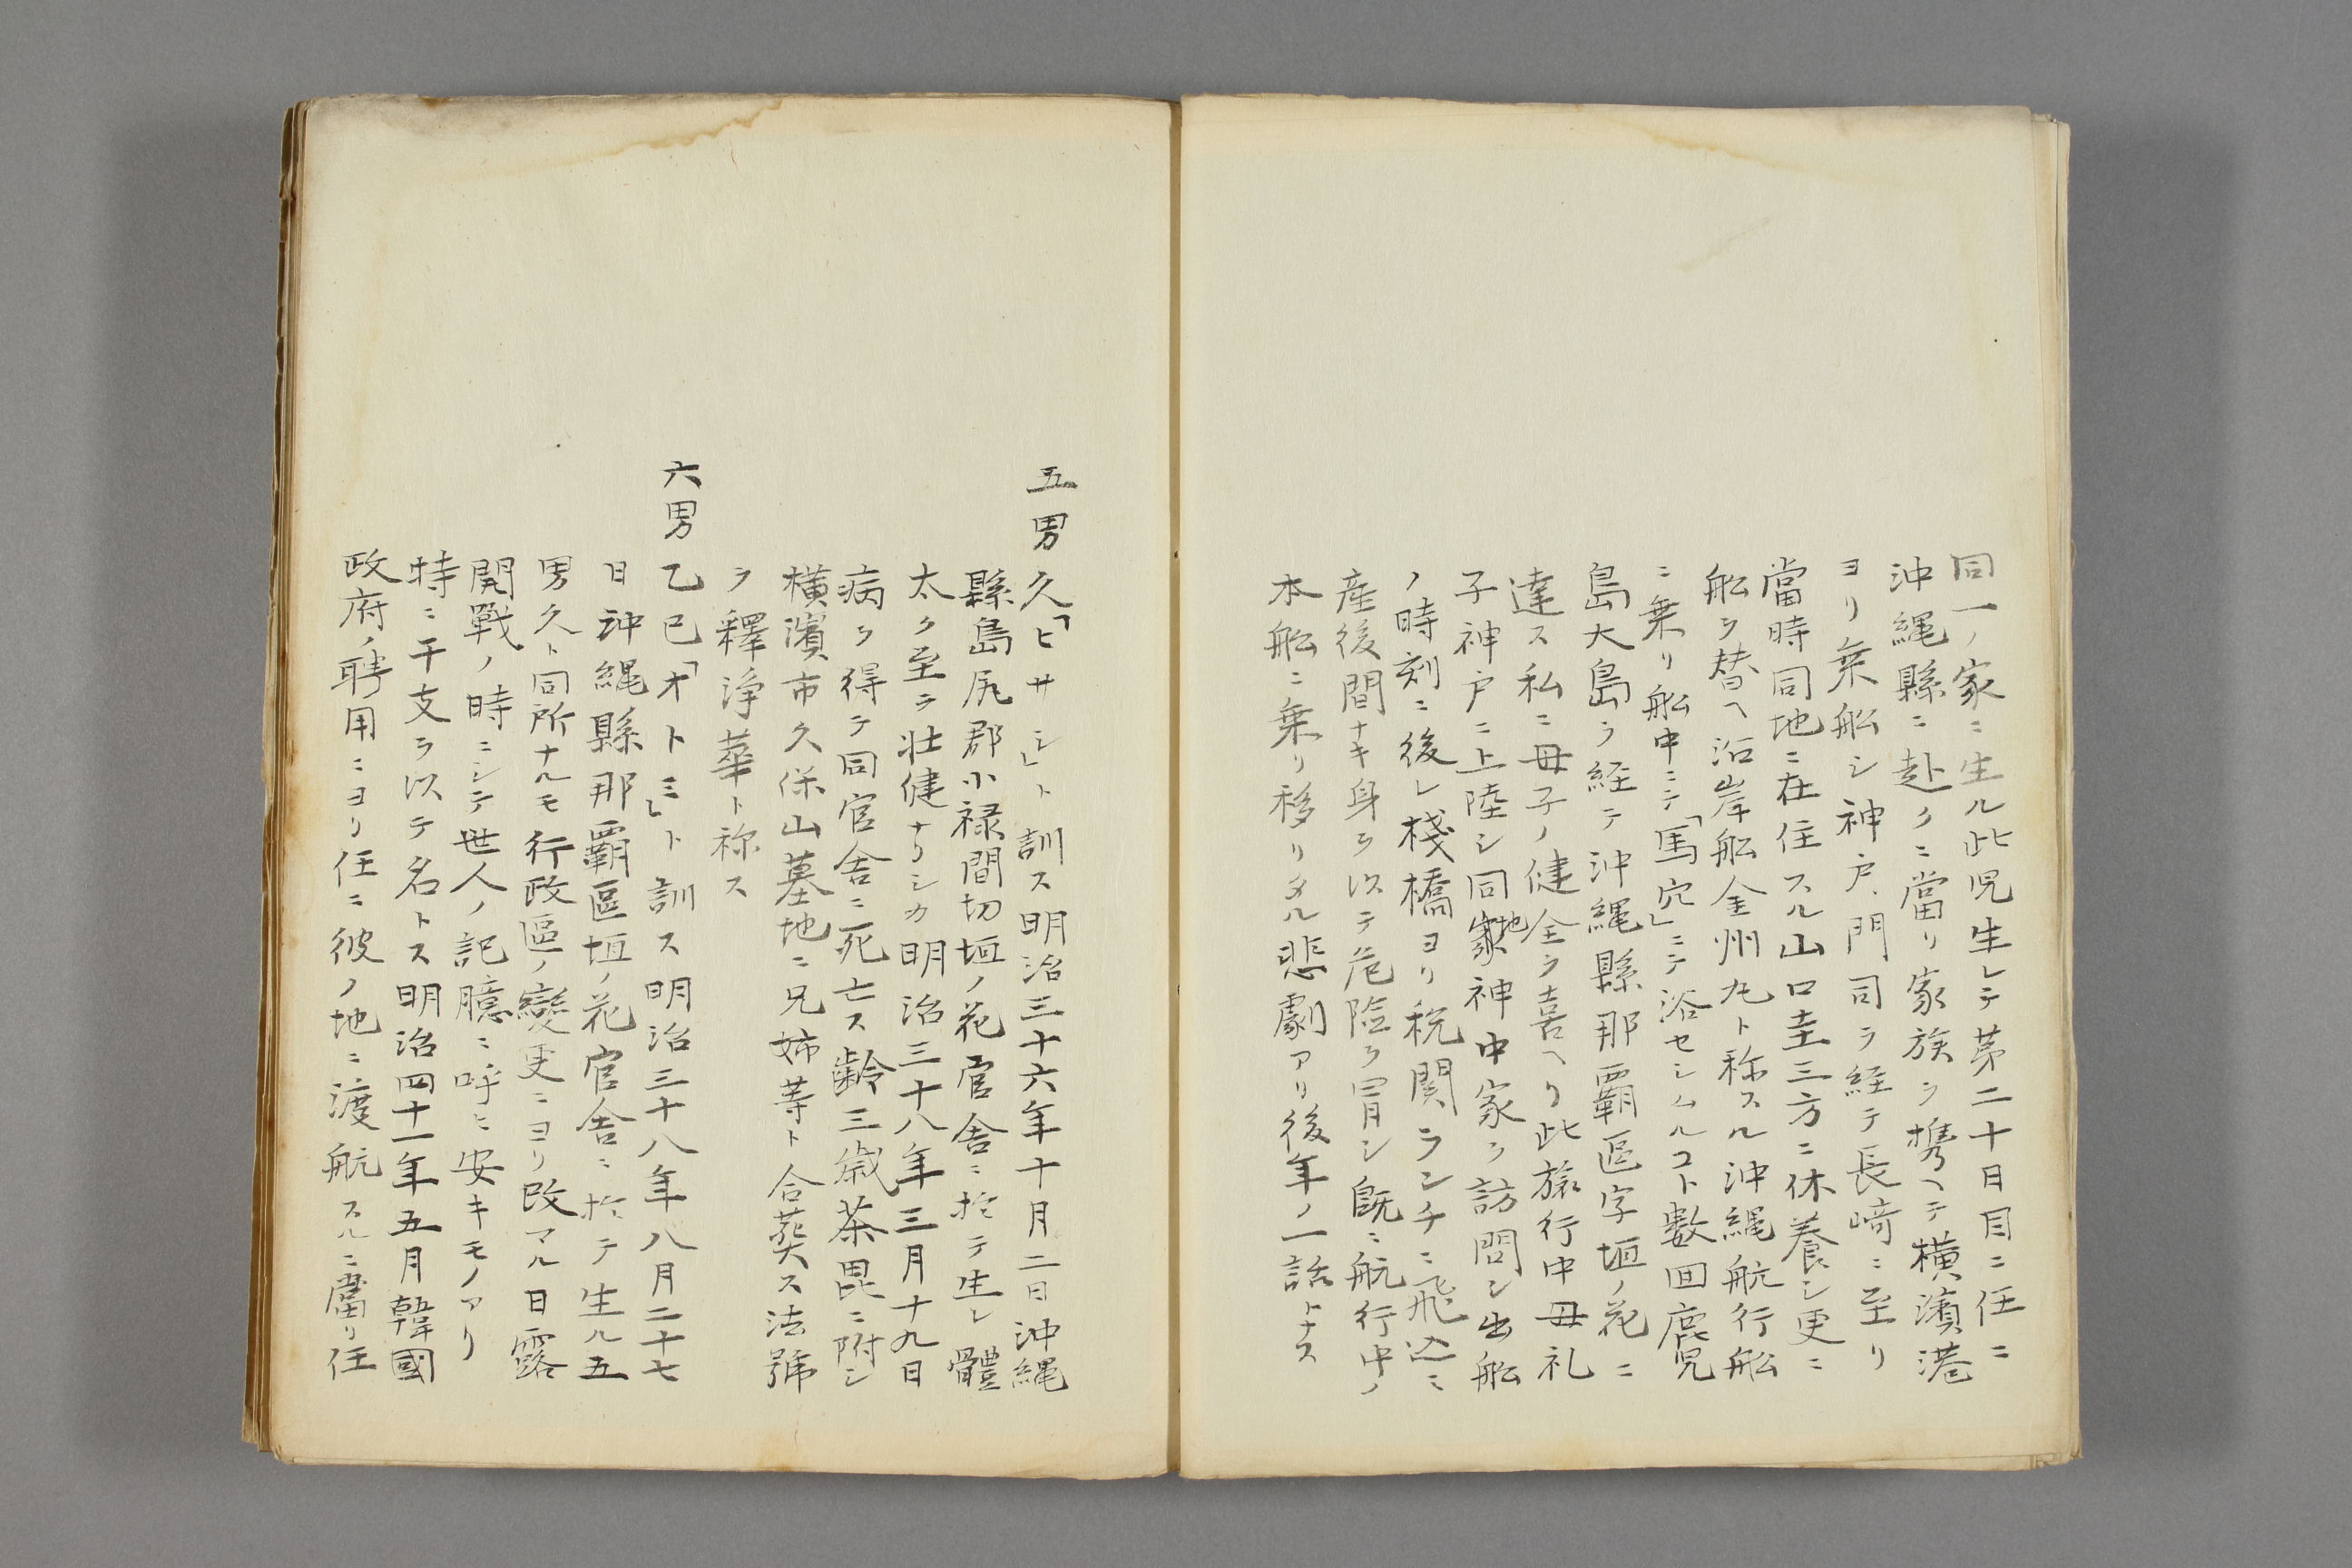 同一ノ家ニ生ル此児生レテ第二十日目ニ任ニ
沖縄縣ニ赴クニ當リ家族ヲ携ヘテ横濱港
ヨリ乗船シ神戸、門司ヲ経テ長崎ニ至リ
當時同地ニ在住スル山口圭三方ニ休養シ更ニ
船ヲ替ヘ沿岸船金州丸ト称スル沖縄航行船
ニ乗リ船中ニテ「馬穴」ニテ浴セシムルコト数回鹿児
島大島ヲ経テ沖縄縣那覇區字垣ノ花ニ
達ス私ニ母子ノ健全ヲ喜ヘリ此旅行中母礼
子神戸ニ上陸シ同地神中家ヲ訪問シ出船
ノ時刻ニ後レ棧橋ヨリ税関ランチニ飛込ミ
産後間ナキ身ヲ以テ危険ヲ冒シ既ニ航行中ノ
本船ニ乗リ移リタル悲劇アリ後年ノ一話トナス
五男久「ヒサシ」ト訓ス明治三十六年十月二日沖縄
縣島尻郡小禄間切垣ノ花官舎ニ於テ生レ體
太ク至テ壮健ナリシカ明治三十八年三月十九日
病ヲ得テ同官舎ニ死亡ス齢三歳茶毘ニ附シ
横濱市久保山墓地ニ兄姉等ト合葬ス法號
ヲ釋浄華ト称ス
六男乙巳「オトミ」ト訓ス明治三十八年八月二十七
日沖縄縣那覇區垣ノ花官舎ニ於テ生ル五
男久ト同所ナルモ行政區ノ變更ニヨリ改マル日露
開戰ノ時ニシテ世人ノ記臆ニ呼ヒ安キモノアリ
特ニ干支ヲ以テ名トス明治四十一年五月韓國
政府ノ聘用ニヨリ任ニ彼ノ地ニ渡航スルニ當リ任